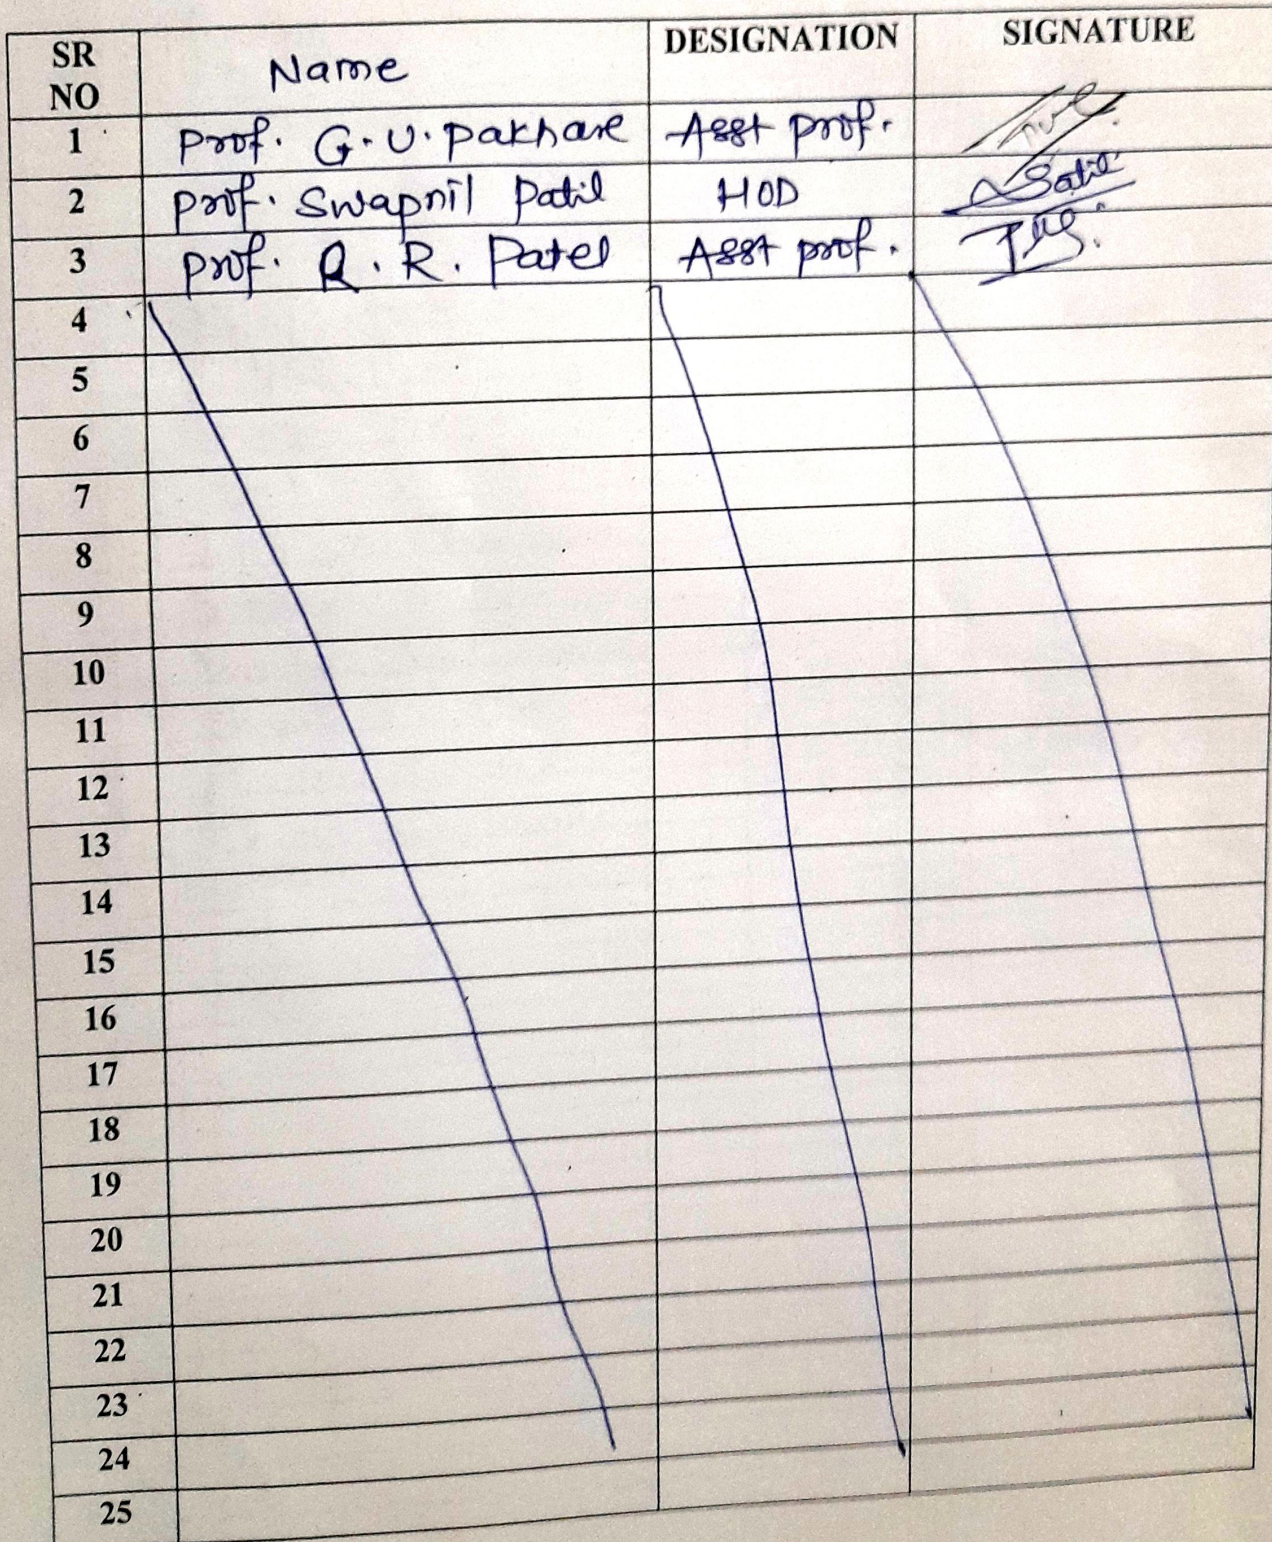 SR NO Name DESIGNATION SIGNATURE
1 Prof. G.U. Pakhare Asst prof.
2 Prof. Swapnil Patil HOD
3 Prof. R. R. Patel Asst prof.
4
5
6
7
8
9
10
11
12
13
14
15
16
17
18
19
20
21
22
23
24
25